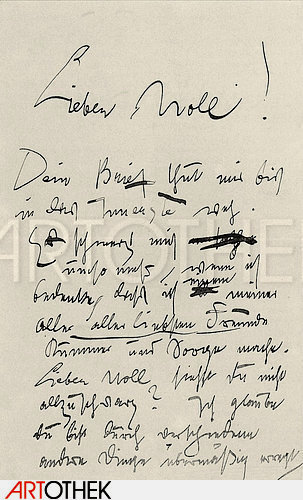 Lieber Moll!
Dein Brief thut mir bis
in das Innerste weh.
Es schmerzt mich
umso mehr, wenn ich
bedenke, dass ich meiner
aller aller liebsten Freunde
Kummer und Sorge mache.
Lieber Moll, siehst du nicht
allzuschwarz? Ich glaube
du bist durch verschiedene
andere Dinge übermäßig erregt
ARTOTHEK
ARTOTHEK